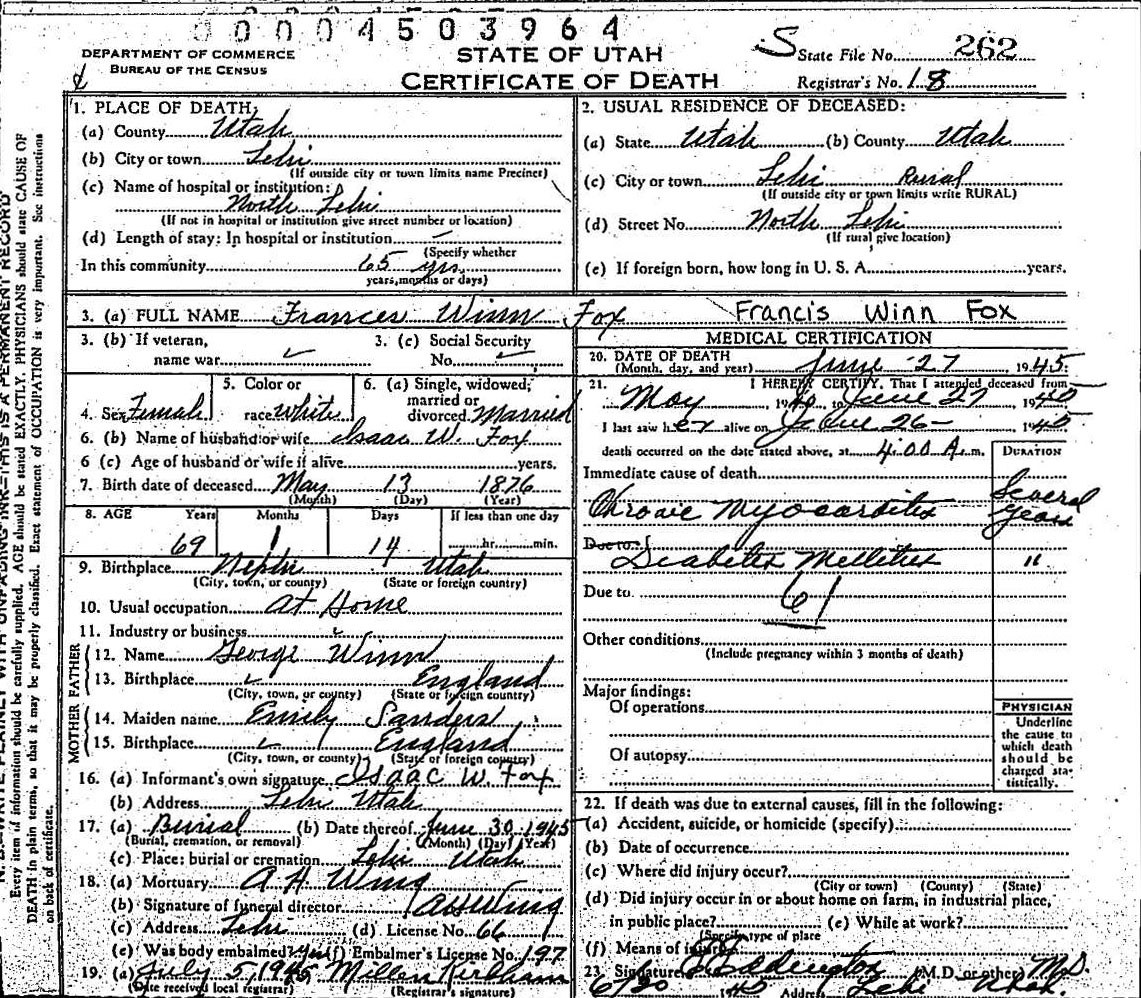 00004503964
DEPARTMENT OF COMMERCE
BUREAU OF THE CENSUS
STATE OF UTAH
CERTIFICATE OF DEATH
S State File No. 262
Registrar's No. 18
1. PLACE OF DEATH:
(a) County Utah
(b) City or town Lehi
(If outside city or town limits name Precinct)
(c) Name of hospital or institution:
North Lehi
(If not in hospital or institution give street number or location)
(d) Length of stay: In hospital or institution –
(Specify whether
In this community 65 yrs
years, months or days)
2. USUAL RESIDENCE OF DECEASED:
(a) State Utah (b) County Utah
(c) City or town Lehi Rural
(If outside city or town limits write RURAL)
(d) Street No. North Lehi
(If rural give location)
(e) If foreign born, how long in U. S. A. years.
3. (a) FULL NAME Frances Winn Fox Francis Winn Fox
3. (b) If veteran,
name war ✓
3. (c) Social Security
No. ✓
4. Sex Female
5. Color or
race white
6. (a) Single, widowed,
married or
divorced Married
6. (b) Name of husband or wife Isaac W. Fox
6 (c) Age of husband or wife if alive years.
7. Birth date of deceased May 13 1876
(Month) (Day) (Year)
8. AGE Years Months Days If less than one day
69 1 14 hr. min.
9. Birthplace Nephi Utah
(City, town, or county) (State or foreign country)
10. Usual occupation at Home
11. Industry or business
FATHER
12. Name George Winn
13. Birthplace England
(City, town, or county) (State or foreign country)
MOTHER
14. Maiden name Emily Sanders
15. Birthplace England
(City, town, or county) (State or foreign country)
16. (a) Informant's own signature Isaac W. Fox
(b) Address Lehi Utah
17. (a) Burial (b) Date thereof June 30 1945
(Burial, cremation, or removal) (Month) (Day) (Year)
(c) Place: burial or cremation Lehi Utah
18. (a) Mortuary A H Wing
(b) Signature of funeral director AH Wing
(c) Address Lehi (d) License No. 66
(e) Was body embalmed? yes (f) Embalmer's License No. 197
19. (a) July 5, 1945 Millen Kirkham
(Date received local registrar) (Registrar's signature)
MEDICAL CERTIFICATION
20. DATE OF DEATH
(Month, day, and year) June 27 1945
21. I HEREBY CERTIFY, That I attended deceased from
May 1940, to June 27 1945
I last saw her alive on June 26– 1945
death occurred on the date stated above, at 4:00 A. m.
DURATION
Immediate cause of death
Chronic Myocarditis Several Years
Due to
Diabetes Mellitus "
Due to 61
Other conditions
(Include pregnancy within 3 months of death)
Major findings:
Of operations
Of autopsy
PHYSICIAN
Underline
the cause to
which death
should be
charged sta-
tistically.
22. If death was due to external causes, fill in the following:
(a) Accident, suicide, or homicide (specify)
(b) Date of occurrence
(c) Where did injury occur?
(City or town) (County) (State)
(d) Did injury occur in or about home on farm, in industrial place,
in public place? (e) While at work?
(Specify type of place
(f) Means of injury
23 Signature Eddington (M.D. or other) M.D.
6/30 1945 Address Lehi Utah.
Every item of information should be carefully supplied. AGE should be stated EXACTLY. PHYSICIANS should state CAUSE OF
DEATH in plain terms, so that it may be properly classified. Exact statement of OCCUPATION is very important. See instructions
on back of certificate.